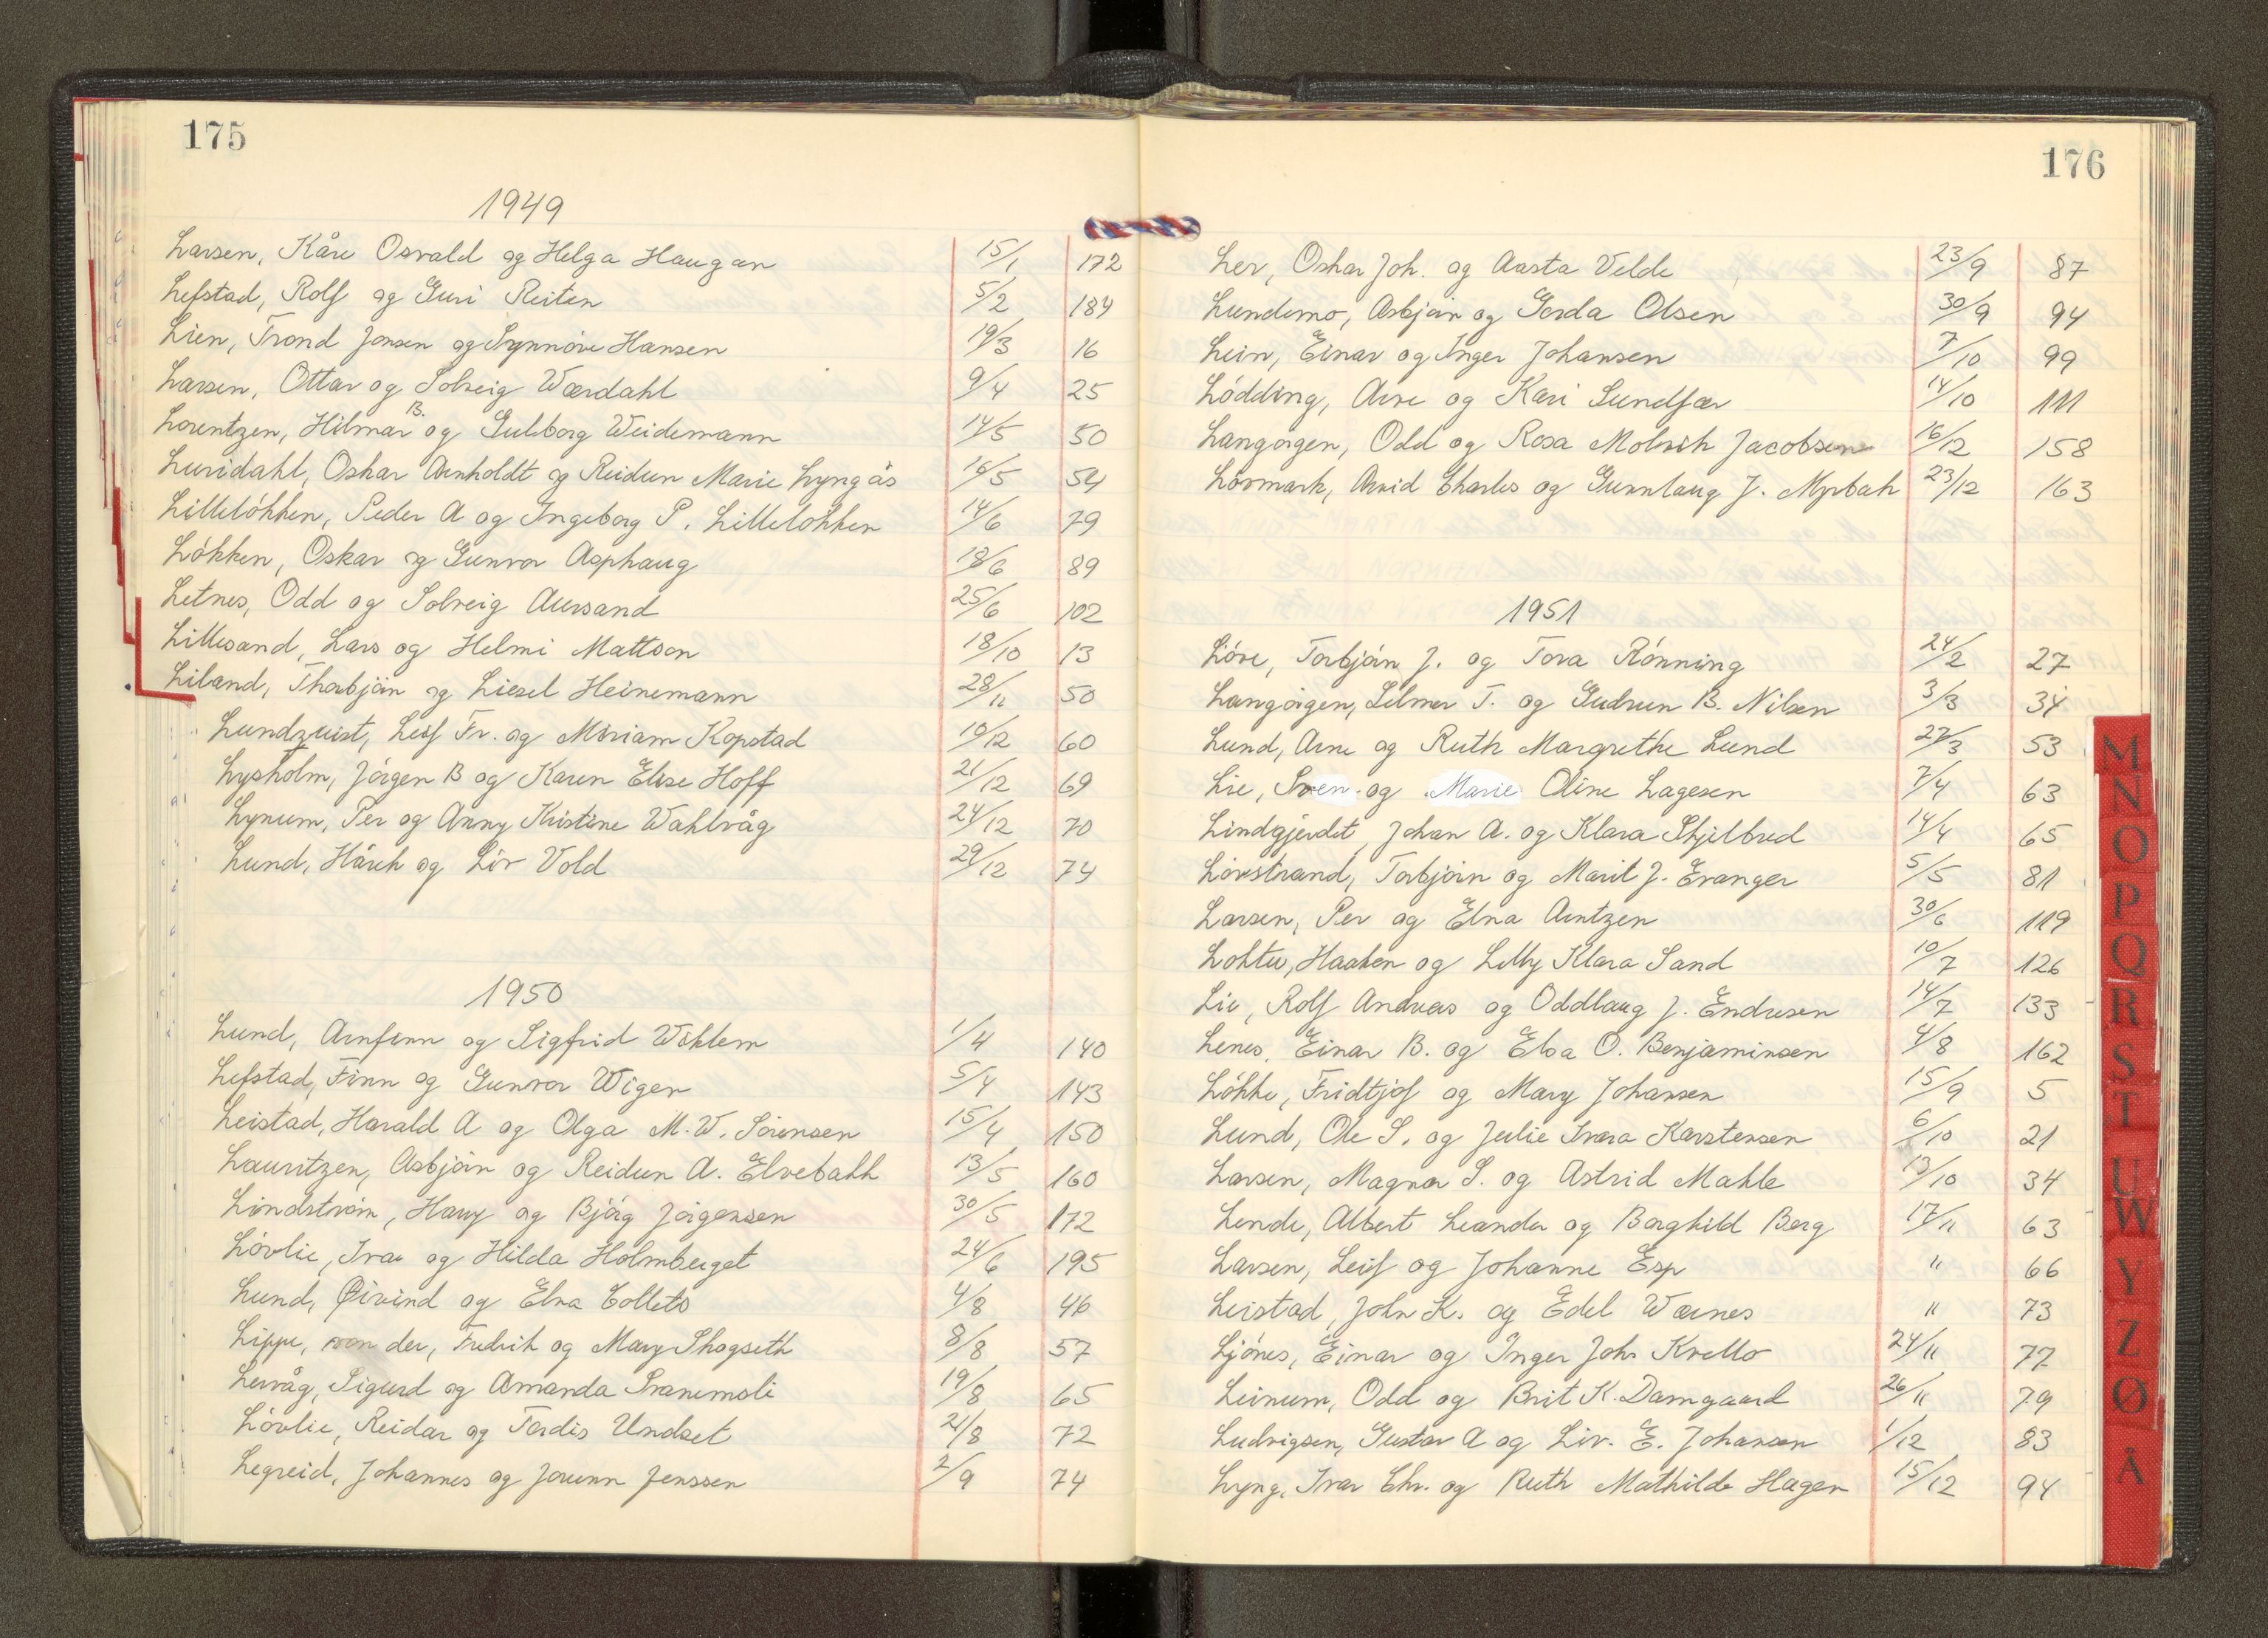 175
1949
Larsen, Kåre Osvald og Helga Haugan 15/1 172
Lefstad, Rolf og Guri Reiten 5/2 184
Lien, Trond Jensen og Synnöve Hansen 19/3 16
Larsen, Ottar og Solveig Wærdahl 9/4 25
Lorentzen, Hilmar B. og Gulborg Weidemann 14/5 50
Luridahl, Oskar Arnholdt og Reidun Marie Lyngås 16/5 54
Lillelökken, Peder A og Ingeborg P. Lillelökken 14/6 79
Lökken, Oskar og Gunvor Asphaug 18/6 89
Letnes, Odd og Solveig Aursand 25/6 102
Lillesand, Lars og Helmi Mattson 18/10 13
Liland, Thorbjörn og Liesel Heinemann 28/11 50
Lundquist, Leif Fr. og Miriam Kopstad 10/12 60
Lysholm, Jörgen B og Karen Elise Hoff 21/12 69
Lynum, Per og Anny Kristine Wahlvåg 24/12 70
Lund, Hårek og Liv Vold 29/12 74
1950
Lund, Arnfinn og Sigfrid Wiklem 1/4 140
Lefstad, Finn og Gunvor Wigen 5/4 143
Leistad, Harald A og Olga M.W. Sörensen 15/4 150
Lauritzen, Asbjörn og Reidun A. Elvebakk 13/5 160
Lindström, Harry og Björg Jörgensen 30/5 172
Lövlie, Ivar og Hilda Holmberget 24/6 195
Lund, Øivind og Elna Collets 4/8 46
Lippe, von der, Fredrik og Mary Skogseth 8/8 57
Lervåg, Sigurd og Amanda Svanemsli 19/8 65
Lövlie, Reidar og Tordis Undset 21/8 72
Legreid, Johannes og Jorunn Jenssen 2/9 74
176
Ler, Oskar Joh. og Aasta Velde 23/9 87
Lundemo, Asbjörn og Gerda Olsen 30/9 94
Lein, Einar og Inger Johansen 7/10 99
Lödding, Arne og Kari Sundfær 14/10 111
Langörgen, Odd og Rosa Molvik Jacobsen 16/12 158
Lövmark, Arvid Charles og Gunnlaug J. Myrbak 23/12 163
1951
Löve, Torbjörn J. og Tora Rönning 24/2 27
Langörgen, Selmer T. og Gudrun B. Nilsen 3/3 34
Lund, Arne og Ruth Margrethe Lund 27/3 53
Lie, Sven og Marie Oline Lagesen 7/4 63
Lindgjerdet, Johan A. og Klara Skjelbred 14/4 65
Lövstrand, Torbjörn og Marit J. Evanger 5/5 81
Larsen, Per og Elna Arntzen 30/6 119
Loktu, Haaken og Lilly Klara Sand 10/7 126
Lie, Rolf Andreas og Oddlaug J. Endresen 14/7 133
Lenes, Einar B. og Elsa O. Benjaminsen 4/8 162
Lökke, Fridtjof og Mary Johansen 15/9 5
Lund, Ole S. og Julie Ivara Karstensen 6/10 21
Larsen, Magnar S. og Astrid Mahle 13/10 34
Lende, Albert Leander og Borghild Berg 17/11 63
Larsen, Leif og Johanne Esp " 66
Leistad, John K. og Edel Wærnes " 73
Ljönes, Einar og Inger Joh. Krello 24/11 77
Leinum, Odd og Brit K. Damgaard 26/11 79
Ludvigsen, Gustav A og Liv. E. Johansen 1/12 83
Lyng, Ivar Chr. og Ruth Mathilde Hagen 15/12 94
M
N
O
P
Q
R
S
T
U
W
Y
Z
Ø
Å